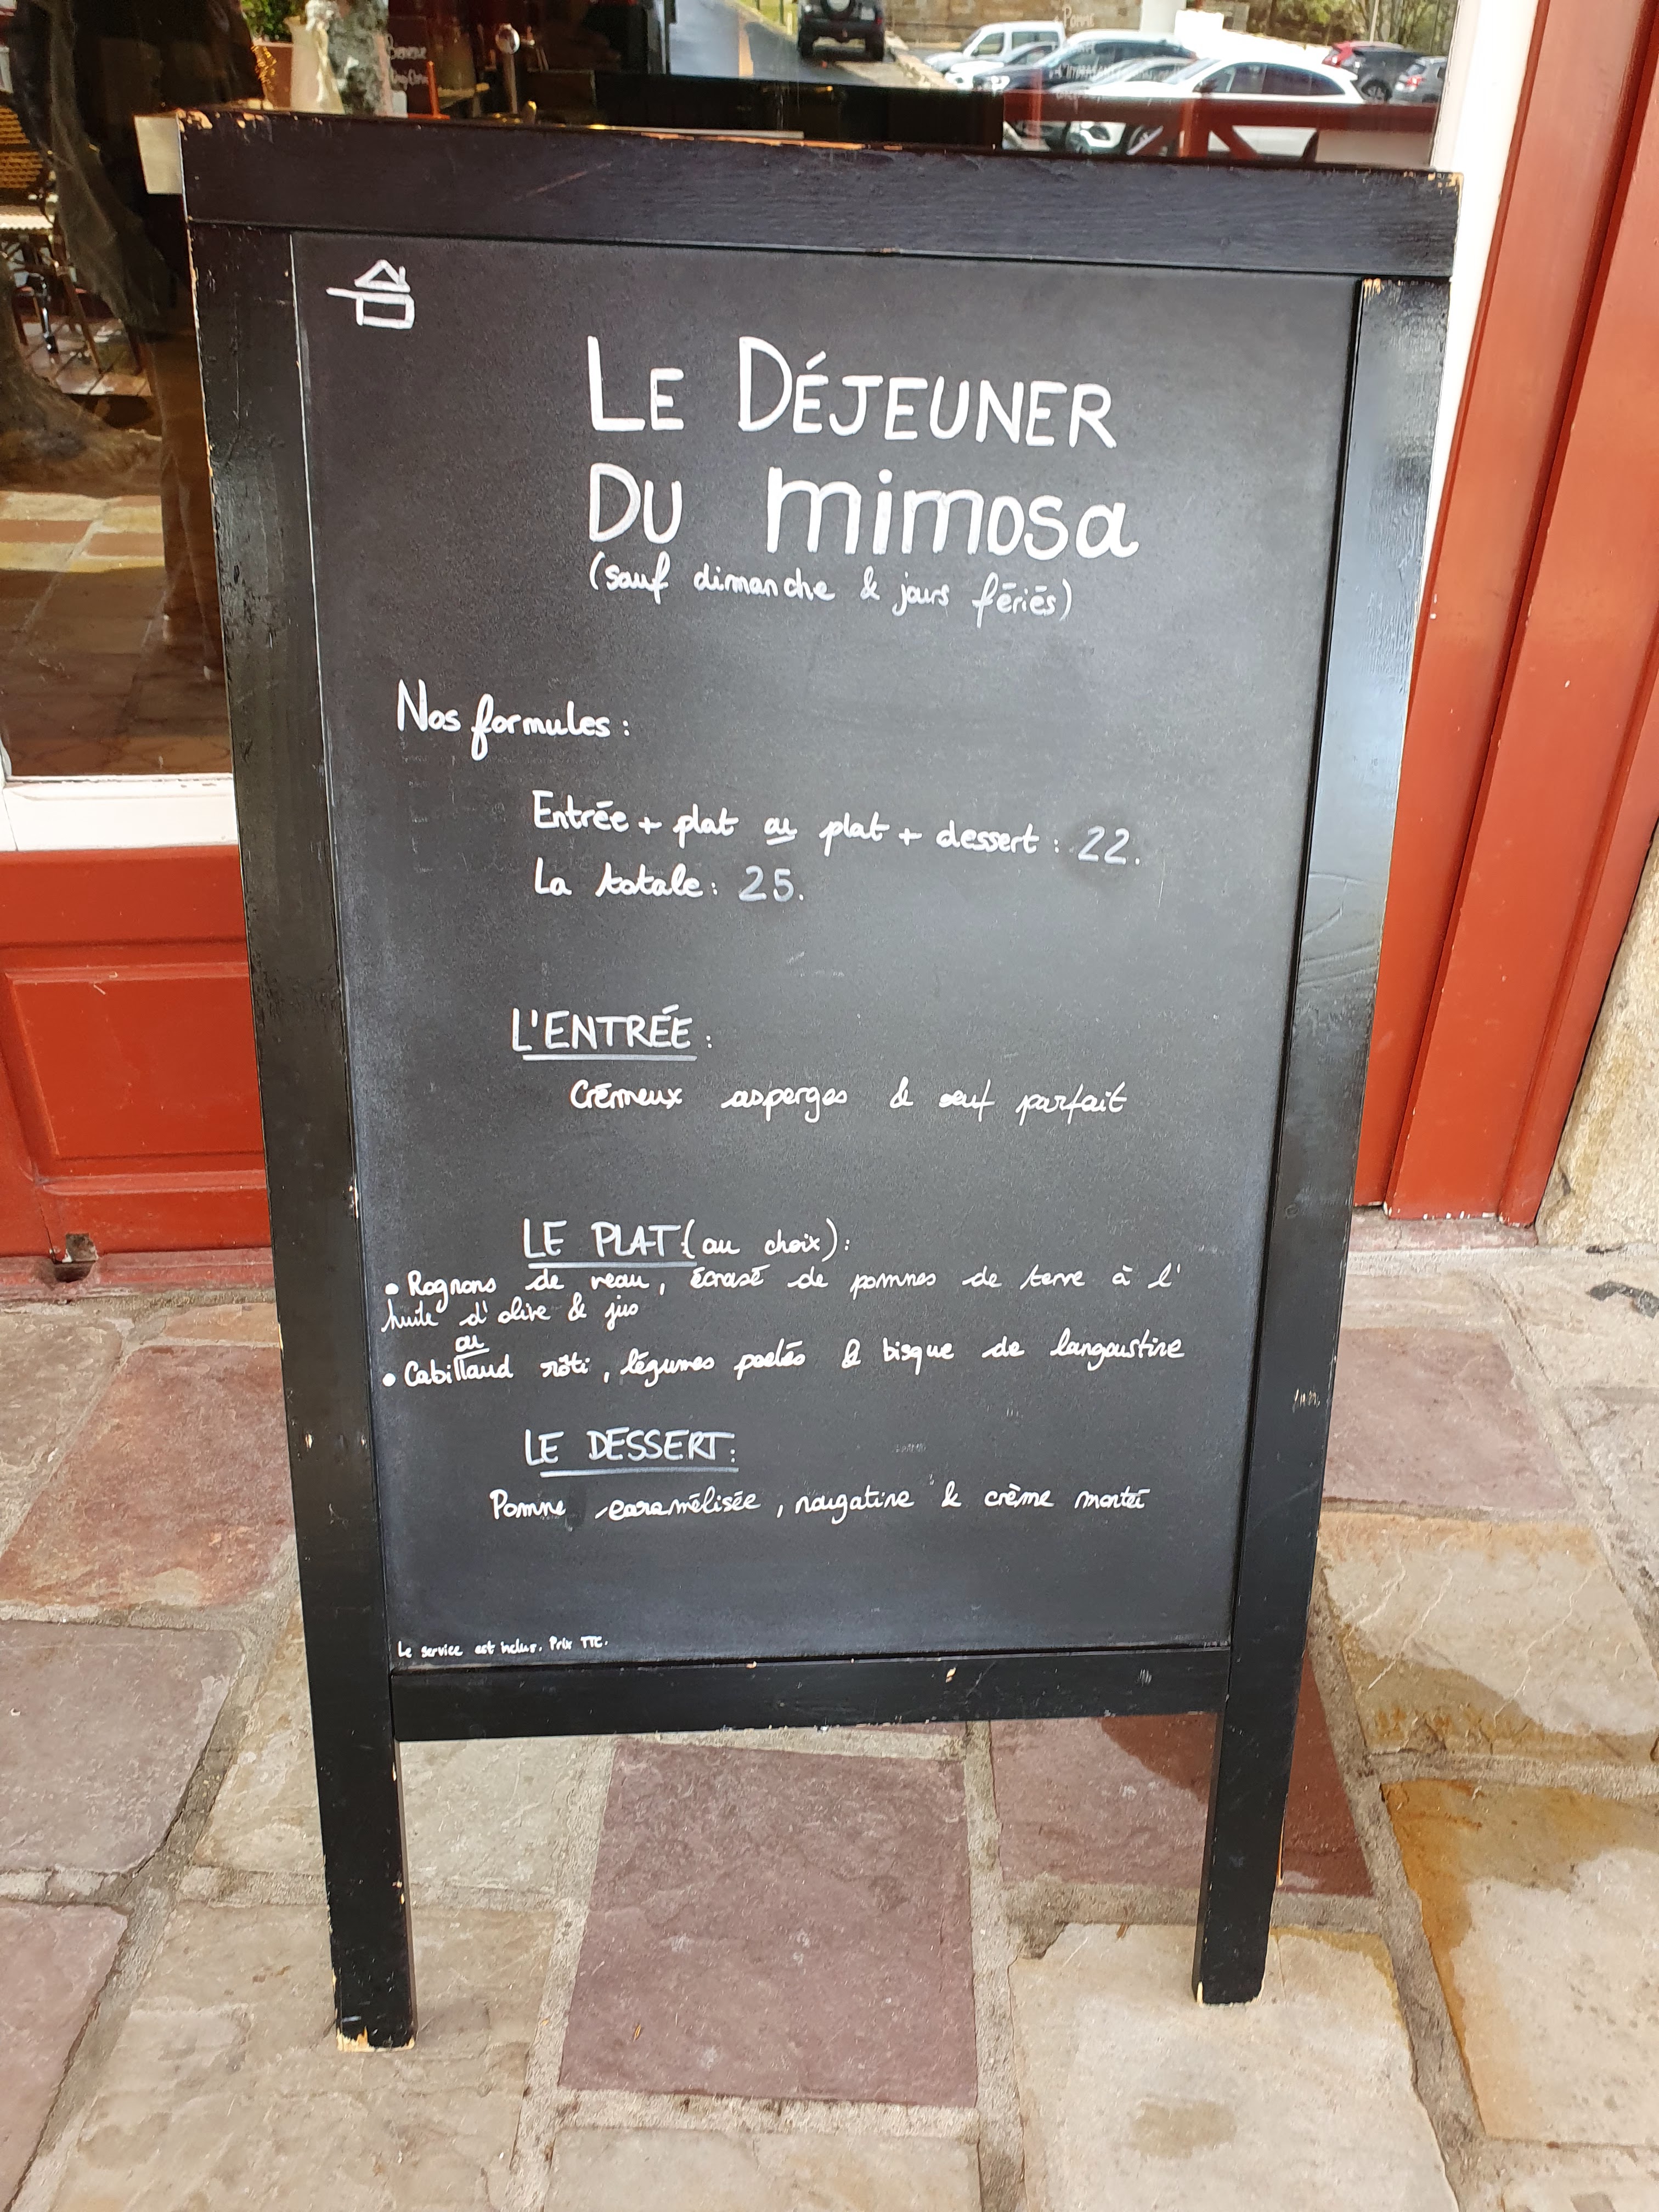 LE DÉJEUNER
DU mimosa
(sauf dimanche & jours fériés)
Nos formules :
Entrée + plat ou plat + dessert : 22.
La totale : 25.
L'ENTRÉE :
Crémeux asperges & œuf parfait
LE PLAT (au choix) :
• Rognons de veau, écrasé de pommes de terre à l'
huile d'olive & jus
ou
• Cabillaud rôti, légumes poelés & bisque de langoustine
LE DESSERT :
Pomme caramélisée, nougatine & crème montée
Le service est inclus. Prix TTC.